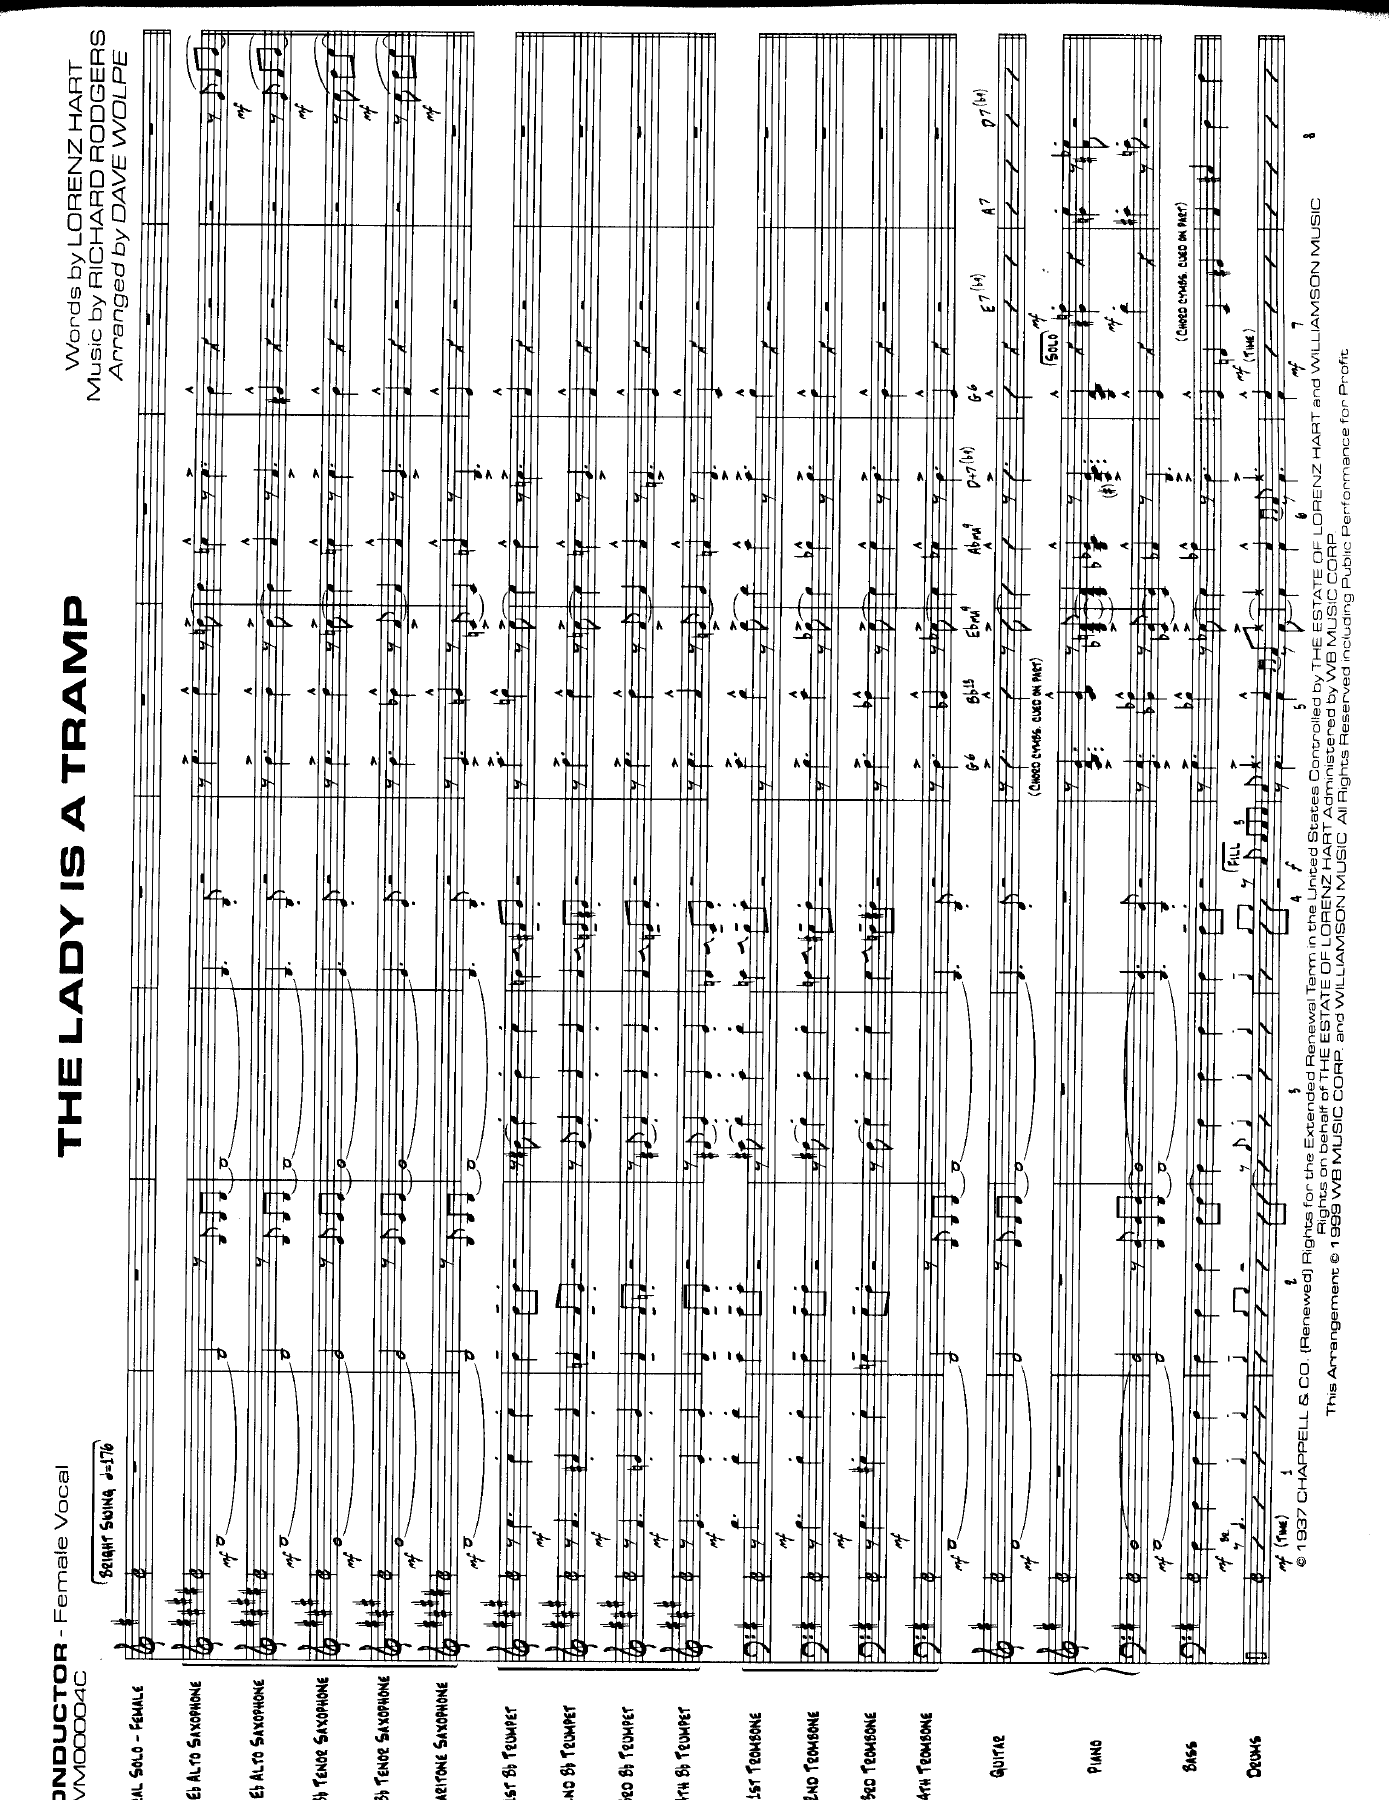 THE LADY IS A TRAMP
ONDUCTOR - Female Vocal
VM00004C
Words by LORENZ HART
Music by RICHARD RODGERS
Arranged by DAVE WOLPE
BRIGHT SWING ♩=176
AL SOLO - FEMALE
Eb ALTO SAXOPHONE
Eb ALTO SAXOPHONE
Bb TENOR SAXOPHONE
Bb TENOR SAXOPHONE
ARITONE SAXOPHONE
1ST Bb TRUMPET
2ND Bb TRUMPET
3RD Bb TRUMPET
4TH Bb TRUMPET
1ST TROMBONE
2ND TROMBONE
3RD TROMBONE
4TH TROMBONE
G6 Bb13 Ebma9 Abma9 D+7(b9) G6 E7(b9) A7 D7(b9)
GUITAR
(CHORD CYMBS. CUED ON PART)
SOLO
mf
PIANO
mf
(CHORD CYMBS. CUED ON PART)
BASS
mf
FILL
mf (TIME)
DRUMS
mf (TIME)
f
mf
1 2 3 4 5 6 7 8
© 1937 CHAPPELL & CO. (Renewed) Rights for the Extended Renewal Term in the United States Controlled by THE ESTATE OF LORENZ HART and WILLIAMSON MUSIC
Rights on behalf of THE ESTATE OF LORENZ HART Administered by WB MUSIC CORP.
This Arrangement © 1999 WB MUSIC CORP. and WILLIAMSON MUSIC All Rights Reserved including Public Performance for Profit